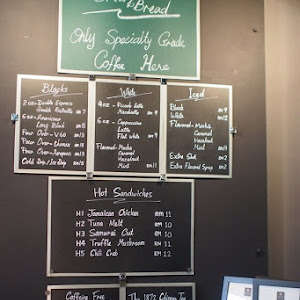 Bread
Only Specialty Grade
Coffee Here
Blacks
2oz - Double Espresso
Double Ristretto RM 7
6oz - Americano
Long Black RM 8
Pour Over - V60 RM
Pour Over - Chemex RM
Pour Over - RM
Cold Drip / Ice Drip RM
White
4oz - Piccolo Latte
Macchiato RM 9
6oz - Cappuccino
Latte
Flat White RM 9
Flavored - Mocha
Caramel
Hazelnut
Mint RM 11
Iced
Black RM 9
White RM
Flavored - Mocha
Caramel
Hazelnut
Mint RM
Extra Shot RM 2
Extra Flavored Syrup RM 2
Hot Sandwiches
H1 Jamaican Chicken RM 11
H2 Tuna Melt RM 10
H3 Samurai Out RM 10
H4 Truffle Mushroom RM 11
H5 Chili Crab RM 12
Caffeine Free
The 1872 Clipper Tea